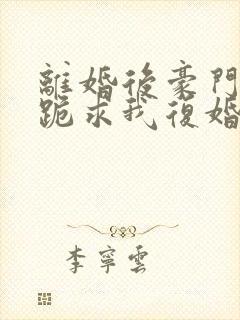 離婚後豪門
跪求我復婚
李寧雲